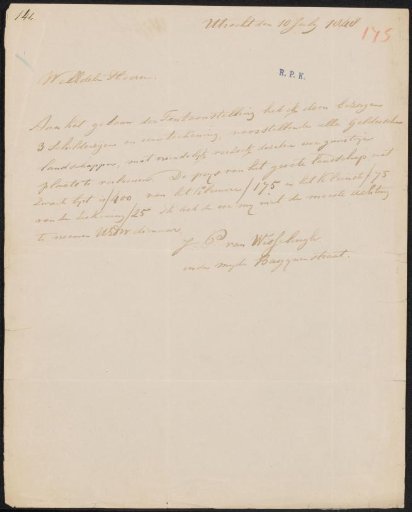 146
Utrecht den 10 July 1848
175
WelEdele Heeren
R.P.K.
Aan het gebouw der Tentoonstelling heb ik doen bezorgen
3 schilderyen en eene tekening voorstellende alle Geldersche
landschappen, met vriendelyk verzoek dezelve een gunstige
plaats te verleenen. De prys van het groote landschap met
zwarte lyst is ƒ400 van het ƒ175 en het ƒ75
van de tekening ƒ25 Ik heb de eer my met de meeste achting
te noemen UEdW dienaar
van Wisselingh
Baggynestraat.